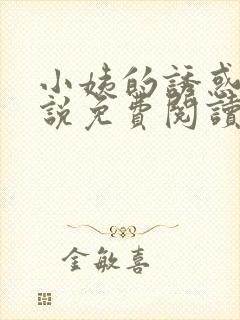 小姨的誘惑
說免費閱讀
金敏喜